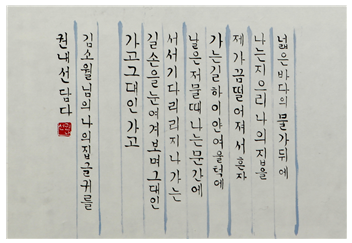 넓은 바다의 물가 뒤에
나는 지으리 나의 집을
제가끔 떨어져서 혼자
가는 길 하이얀 여울턱에
날은 저물 때 나는 문간에
서서 기다리리 지나가는
길손을 눈여겨보며 그대인
가고 그대인가고
김소월님의 나의 집 글귀를
권내선 담다